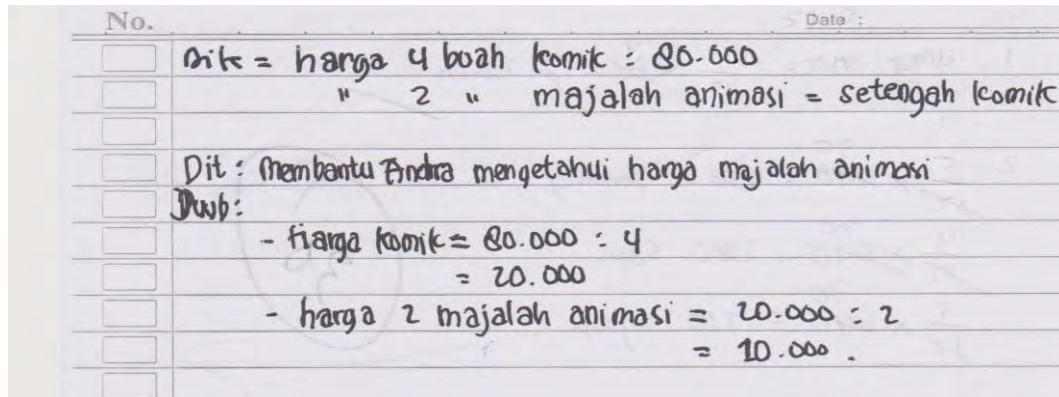 No. Date :
Dik = harga 4 buah komik : 80.000
" 2 " majalah animasi = setengah komik
Dit : Membantu Andra mengetahui harga majalah animasi
Jwb:
- Harga komik = 80.000 : 4
= 20.000
- harga 2 majalah animasi = 20.000 : 2
= 10.000 .